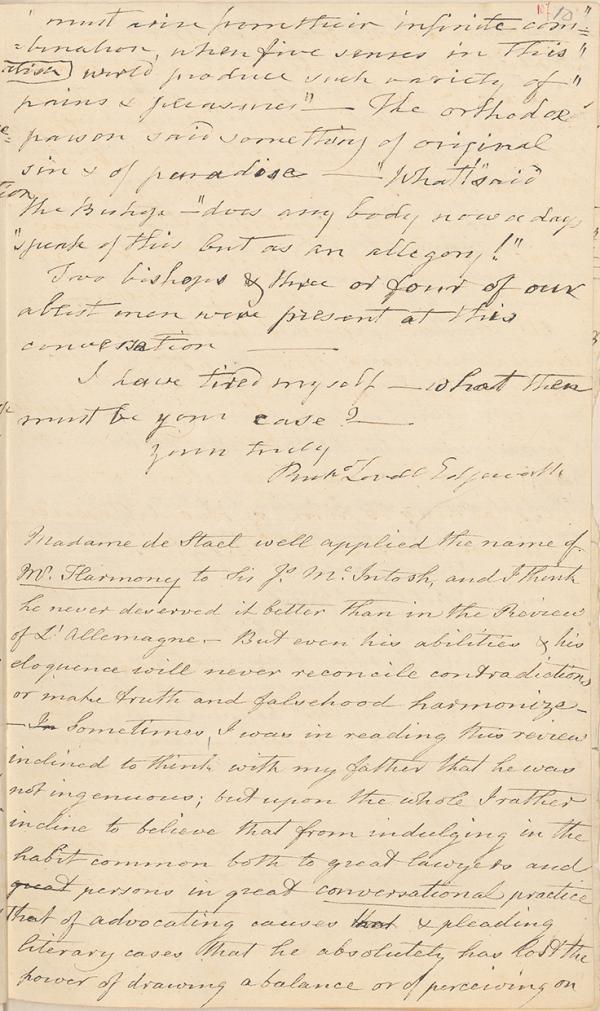 10
" must arise from their infinite com=
=bination, when five senses in this "
world produce such variety of "
pains & pleasures" — The orthodox
parson said something of original
sin & of paradise — "What!" said
the Bishop — "does any body now a days
"speak of this but as an allegory!"
Two bishops & three or four of our
ablest men were present at this
conversation —
I have tired myself — what then
must be your case? —
Yours truly
Richd Lovell Edgeworth
Madame de Stael well applied the name of
Mr. Harmony to Sir Js. McIntosh, and I think
he never deserved it better than in the Review
of L'Allemagne — But even his abilities & his
eloquence will never reconcile contradictions
or make truth and falsehood harmonize —
— In Sometimes, I was in reading this review
inclined to think with my father that he was
not ingenuous; but upon the whole I rather
incline to believe that from indulging in the
habit common both to great lawyers and
great persons in great conversational practice
that of advocating causes that & pleading
literary cases that he absolutely has lost the
power of drawing a balance or of perceiving on